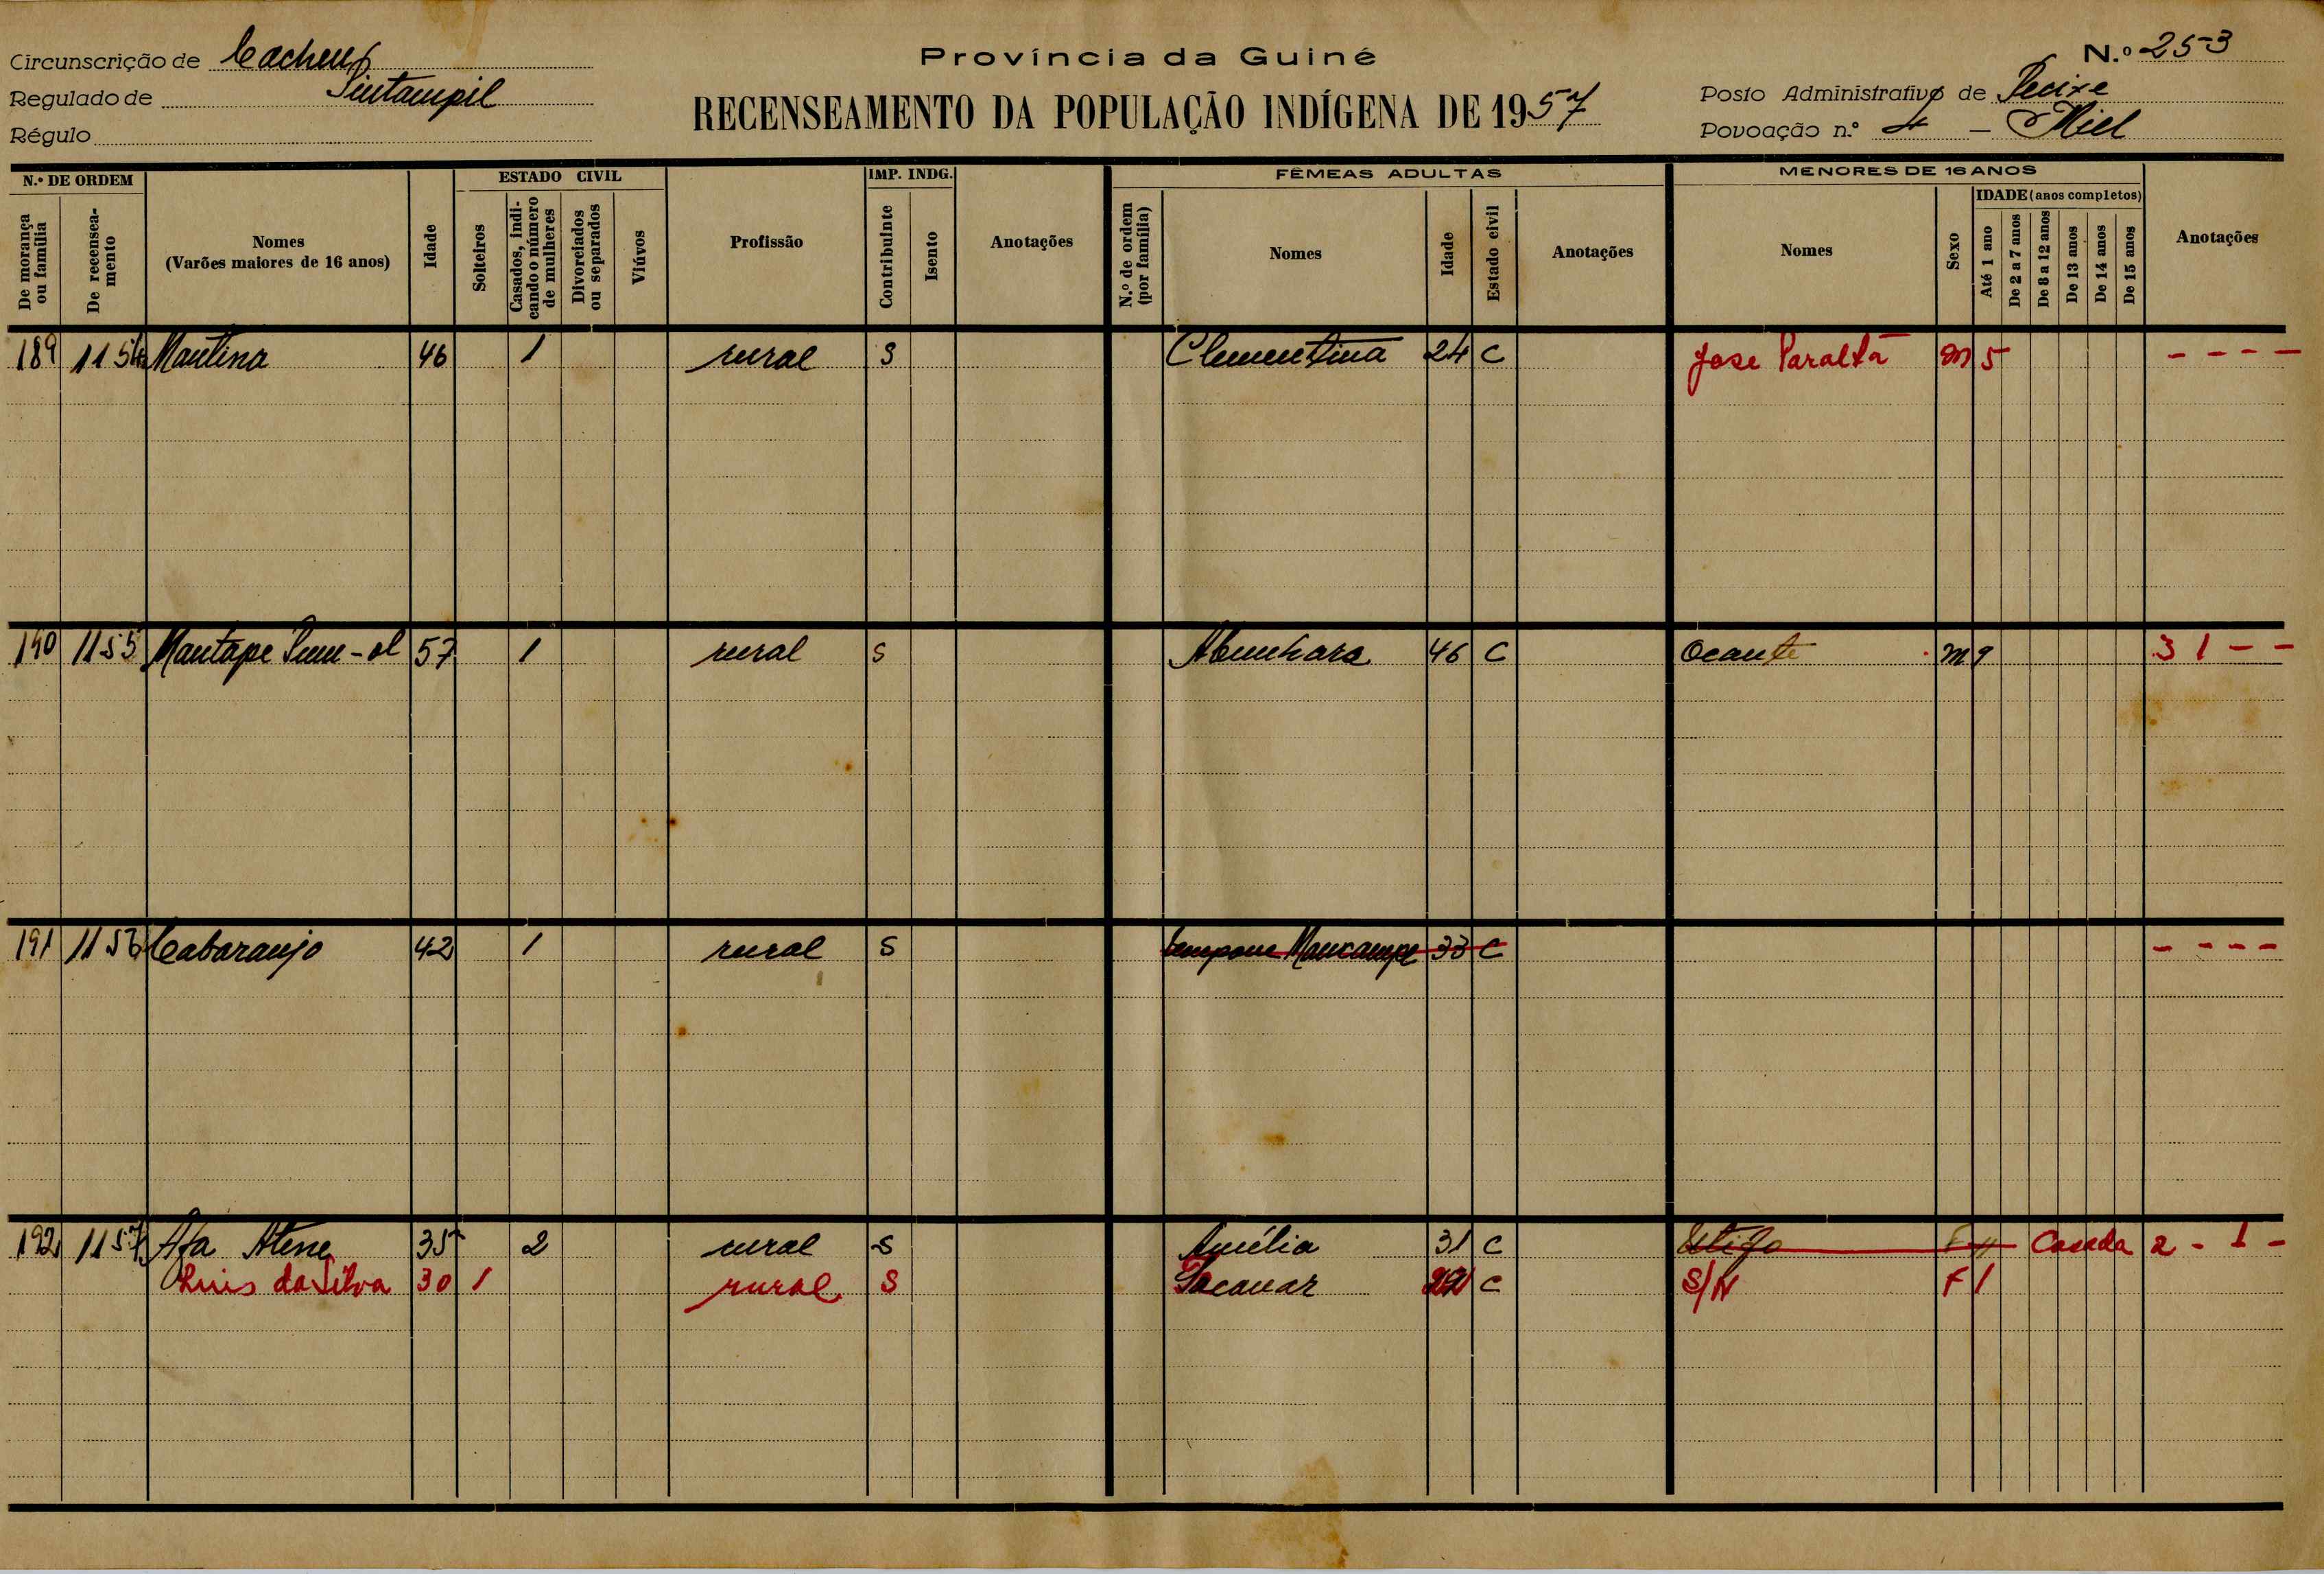 Circunscrição de Cacheu
Regulado de Sintampil
Régulo
Província da Guiné
RECENSEAMENTO DA POPULAÇÃO INDÍGENA DE 1957
N.º 253
Posto Administrativo de Pecixe
Povoação n.º 4 -
N.º DE ORDEM
De morança ou família
De recenseamento
Nomes
(Varões maiores de 16 anos)
Idade
ESTADO CIVIL
Solteiros
Casados, indicando o número de mulheres
Divorciados ou separados
Viúvos
Profissão
IMP. INDG.
Contribuinte
Isento
Anotações
FÊMEAS ADULTAS
N.º de ordem (por família)
Nomes
Idade
Estado civil
Anotações
MENORES DE 16 ANOS
Nomes
Sexo
IDADE (anos completos)
Até 1 ano
De 2 a 7 anos
De 8 a 12 anos
De 13 anos
De 14 anos
De 15 anos
Anotações
189 1154 Mantina 46 1 rural S Clementina 24 C Jose Paralta M 5 - - - -
190 1155 Mantape 57 1 rural S 46 C Ocante M 9 3 1 - -
191 1156 Cabaraujo 42 1 rural S Mancampe 33 C - - - -
192 1157 Afa Atene 35 2 rural S Amélia 31 C Casada 2 - 1 -
Luis da Silva 30 1 rural S Socanar C S/N F 1